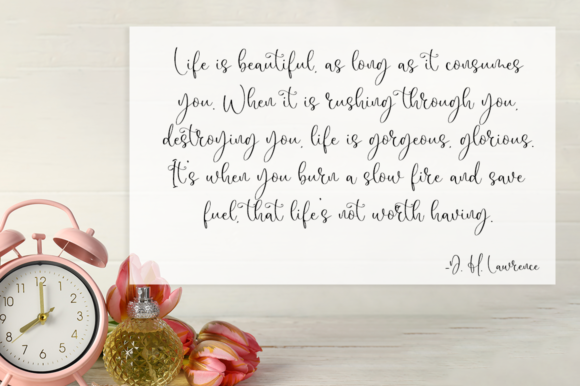 Life is beautiful, as long as it consumes
you. When it is rushing through you,
destroying you, life is gorgeous, glorious.
It's when you burn a slow fire and save
fuel, that life's not worth having.
-D. H. Lawrence
12
1
2
3
4
5
6
7
8
9
10
11